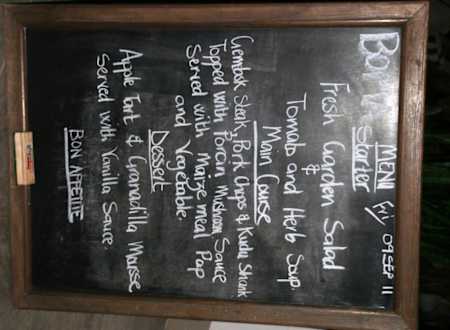 MENU Fri 09 SEP 11
Starter
Fresh Garden Salad
&
Tomato and Herb Soup
Main Course
Gemsbok Steak, Pork Chops & Kudu Shank
Topped with Porcini Mushroom Sauce
Served with maize meal Pap
and Vegetable.
Dessert
Apple Tart & Granadilla Mousse
Served with Vanilla Sauce.
BON APPETITE